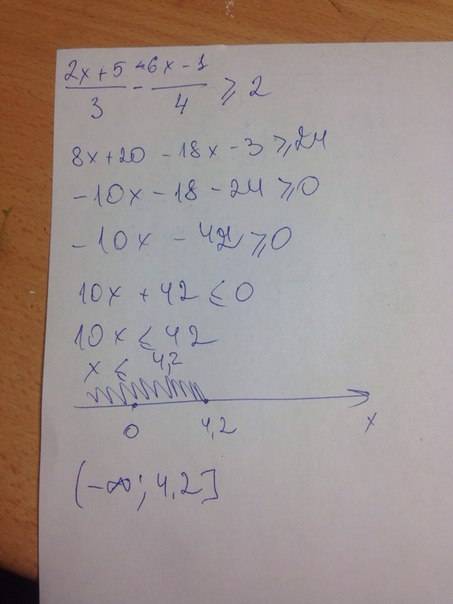 (2x+5)/3 - (6x-1)/4 ≥ 2
8x+20 - 18x - 3 ≥ 24
-10x - 18 - 24 ≥ 0
-10x - 42 ≥ 0
10x + 42 ≤ 0
10x ≤ 42
x ≤ 4,2
0 4,2 x
(-∞; 4,2]